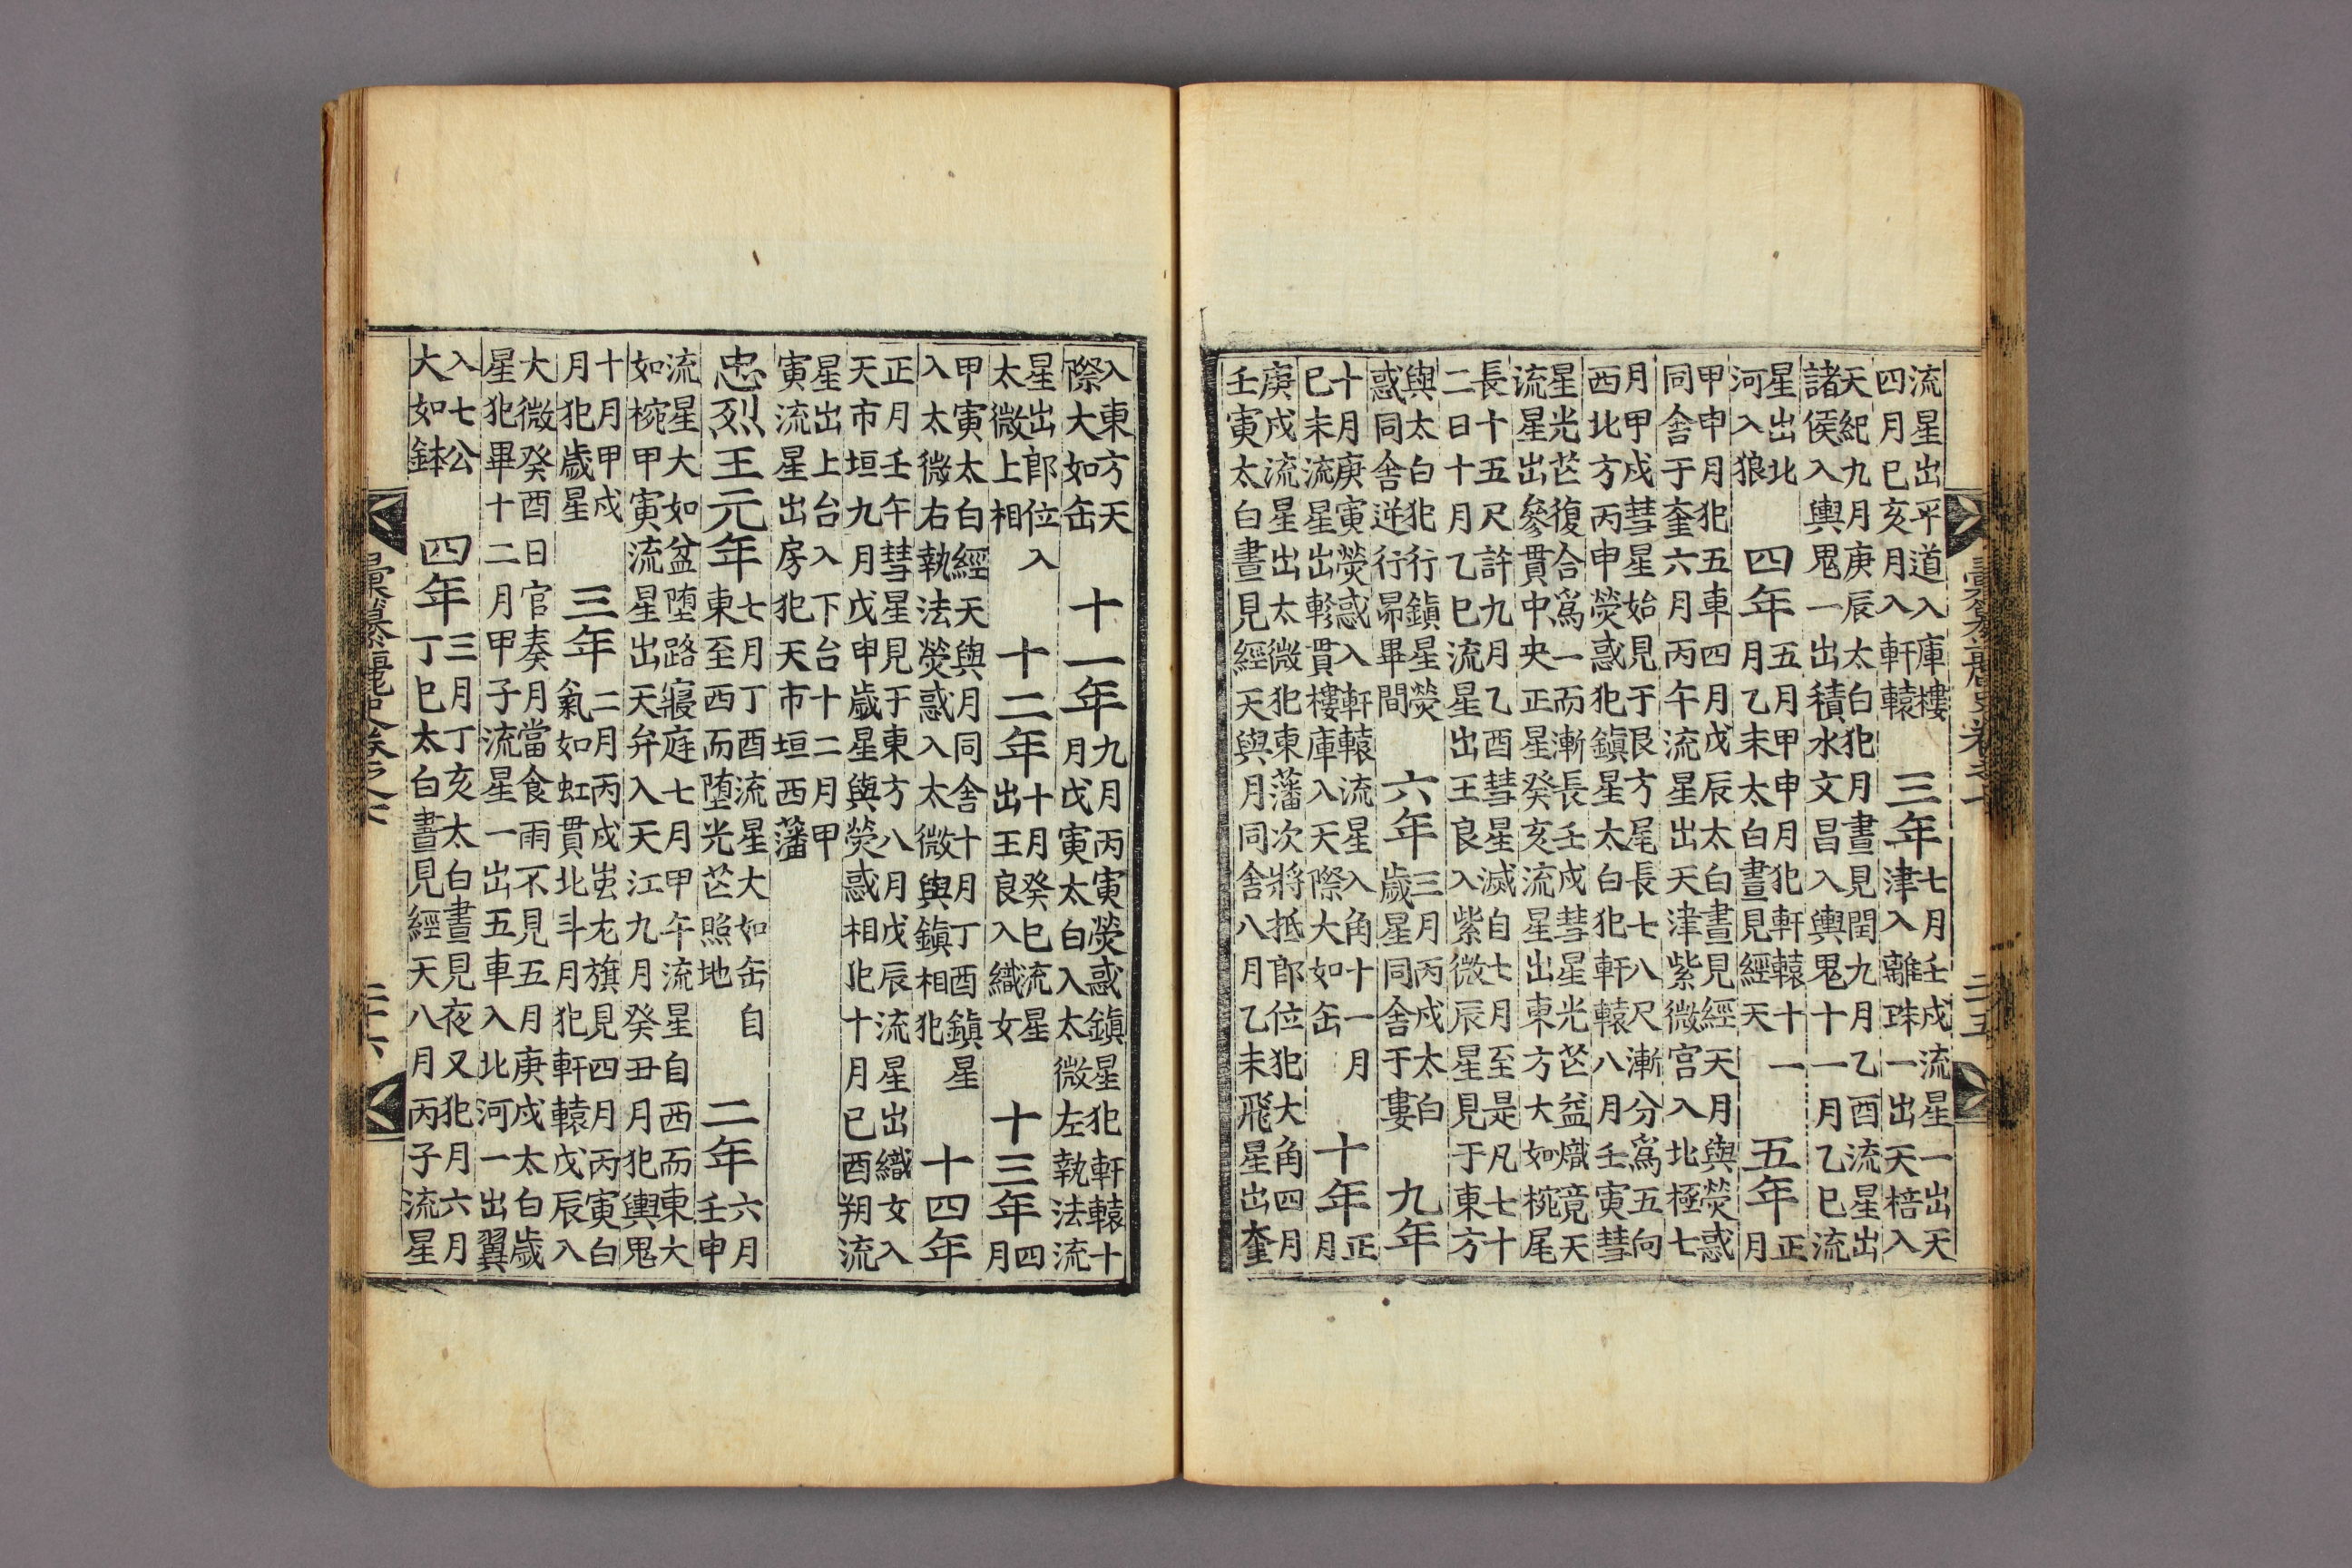 流星出平道入庫樓
四月巳亥月入軒轅
三年
七月壬戌流星一出天
津入離珠一出天棓入
天紀九月庚辰太白犯月晝見閏九月乙酉流星出
諸侯入輿鬼一出積水文昌入輿鬼十一月乙巳流
星出北
河入狼
四年
五月甲申月犯軒轅十一
月乙未太白晝見經天
五年
正
月
甲申月犯五車四月戊辰太白晝見經天月與熒惑
同舍于奎六月丙午流星出天津紫微宮入北極七
月甲戌彗星始見于艮方尾長七八尺漸分爲五向
西北方丙申熒惑犯鎭星太白犯軒轅八月壬寅彗
星光芒復合爲一而漸長壬戌彗星光芒益熾竟天
流星出參貫中央正星癸亥流星出東方大如椀尾
長十五尺許九月乙酉彗星滅自七月至是凡七十
二日十月乙巳流星出王良入紫微辰星見于東方
與太白犯行鎭星熒
惑同舍逆行昴畢間
六年
三月丙戌太白
歲星同舍于婁
九年
十月庚寅熒惑入軒轅流星入角十一月
巳未流星出軫貫樓庫入天際大如缶
十年
正
月
庚戌流星出太微犯東藩次將抵郎位犯大角四月
壬寅太白晝見經天與月同舍八月乙未飛星出奎
二十五
入東方天
際大如缶
十一年
九月丙寅熒惑鎭星犯軒轅十
月戊寅太白入太微左執法流
星出郎位入
太微上相
十二年
十月癸巳流星
出王良入織女
十三年
四
月
甲寅太白經天與月同舍十月丁酉鎭星
入太微右執法熒惑入太微與鎭相犯
十四年
正月壬午彗星見于東方八月戊辰流星出織女入
天市垣九月戊申歲星與熒惑相犯十月巳酉朔流
星出上台入下台十二月甲
寅流星出房犯天市垣西藩
忠烈王元年
七月丁酉流星大如缶自
東至西而堕光芒照地
二年
六月
壬申
流星大如盆堕路寢庭七月甲午流星自西而東大
如椀甲寅流星出天弁入天江九月癸丑月犯輿鬼
十月甲戌
月犯歲星
三年
二月丙戌蚩尤旗見四月丙寅白
氣如虹貫北斗月犯軒轅戊辰入
大微癸酉日官奏月當食雨不見五月庚戌太白歲
星犯畢十二月甲子流星一出五車入北河一出翼
入七公
大如鉢
四年
三月丁亥太白晝見夜又犯月六月
丁巳太白晝見經天八月丙子流星
彙纂麗史卷之